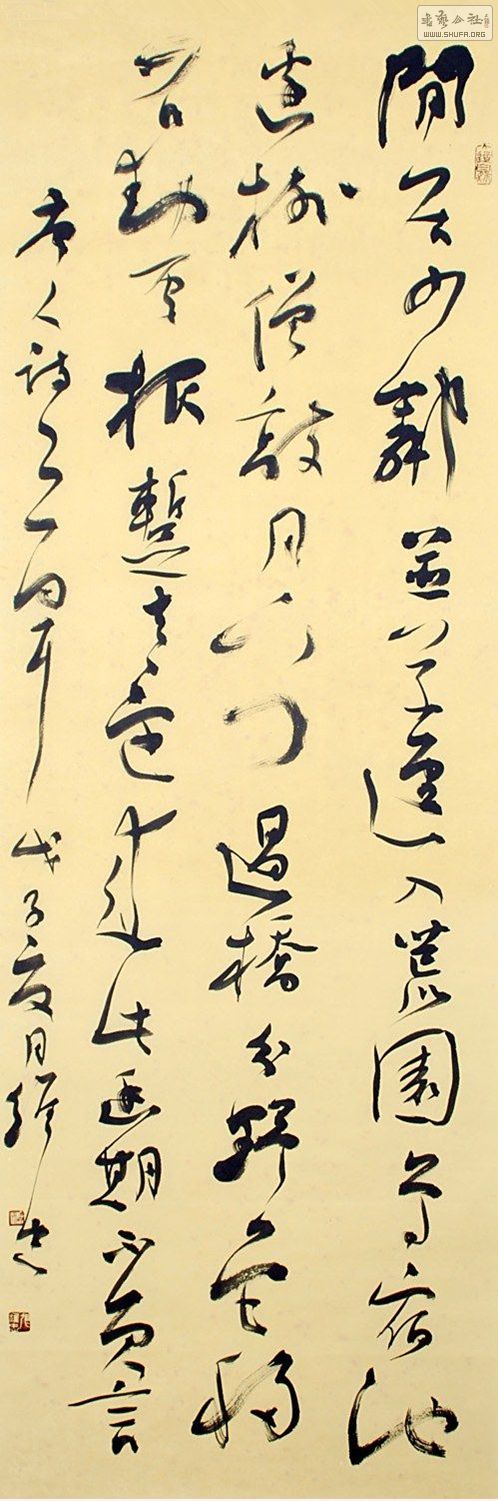 書藝公社
WWW.SHUFA.ORG
閒居少鄰並草徑入荒園鳥宿池
邊樹僧敲月下門過橋分野色移
石動雲根暫去還來此幽期不負言
人詩 戊子夏月